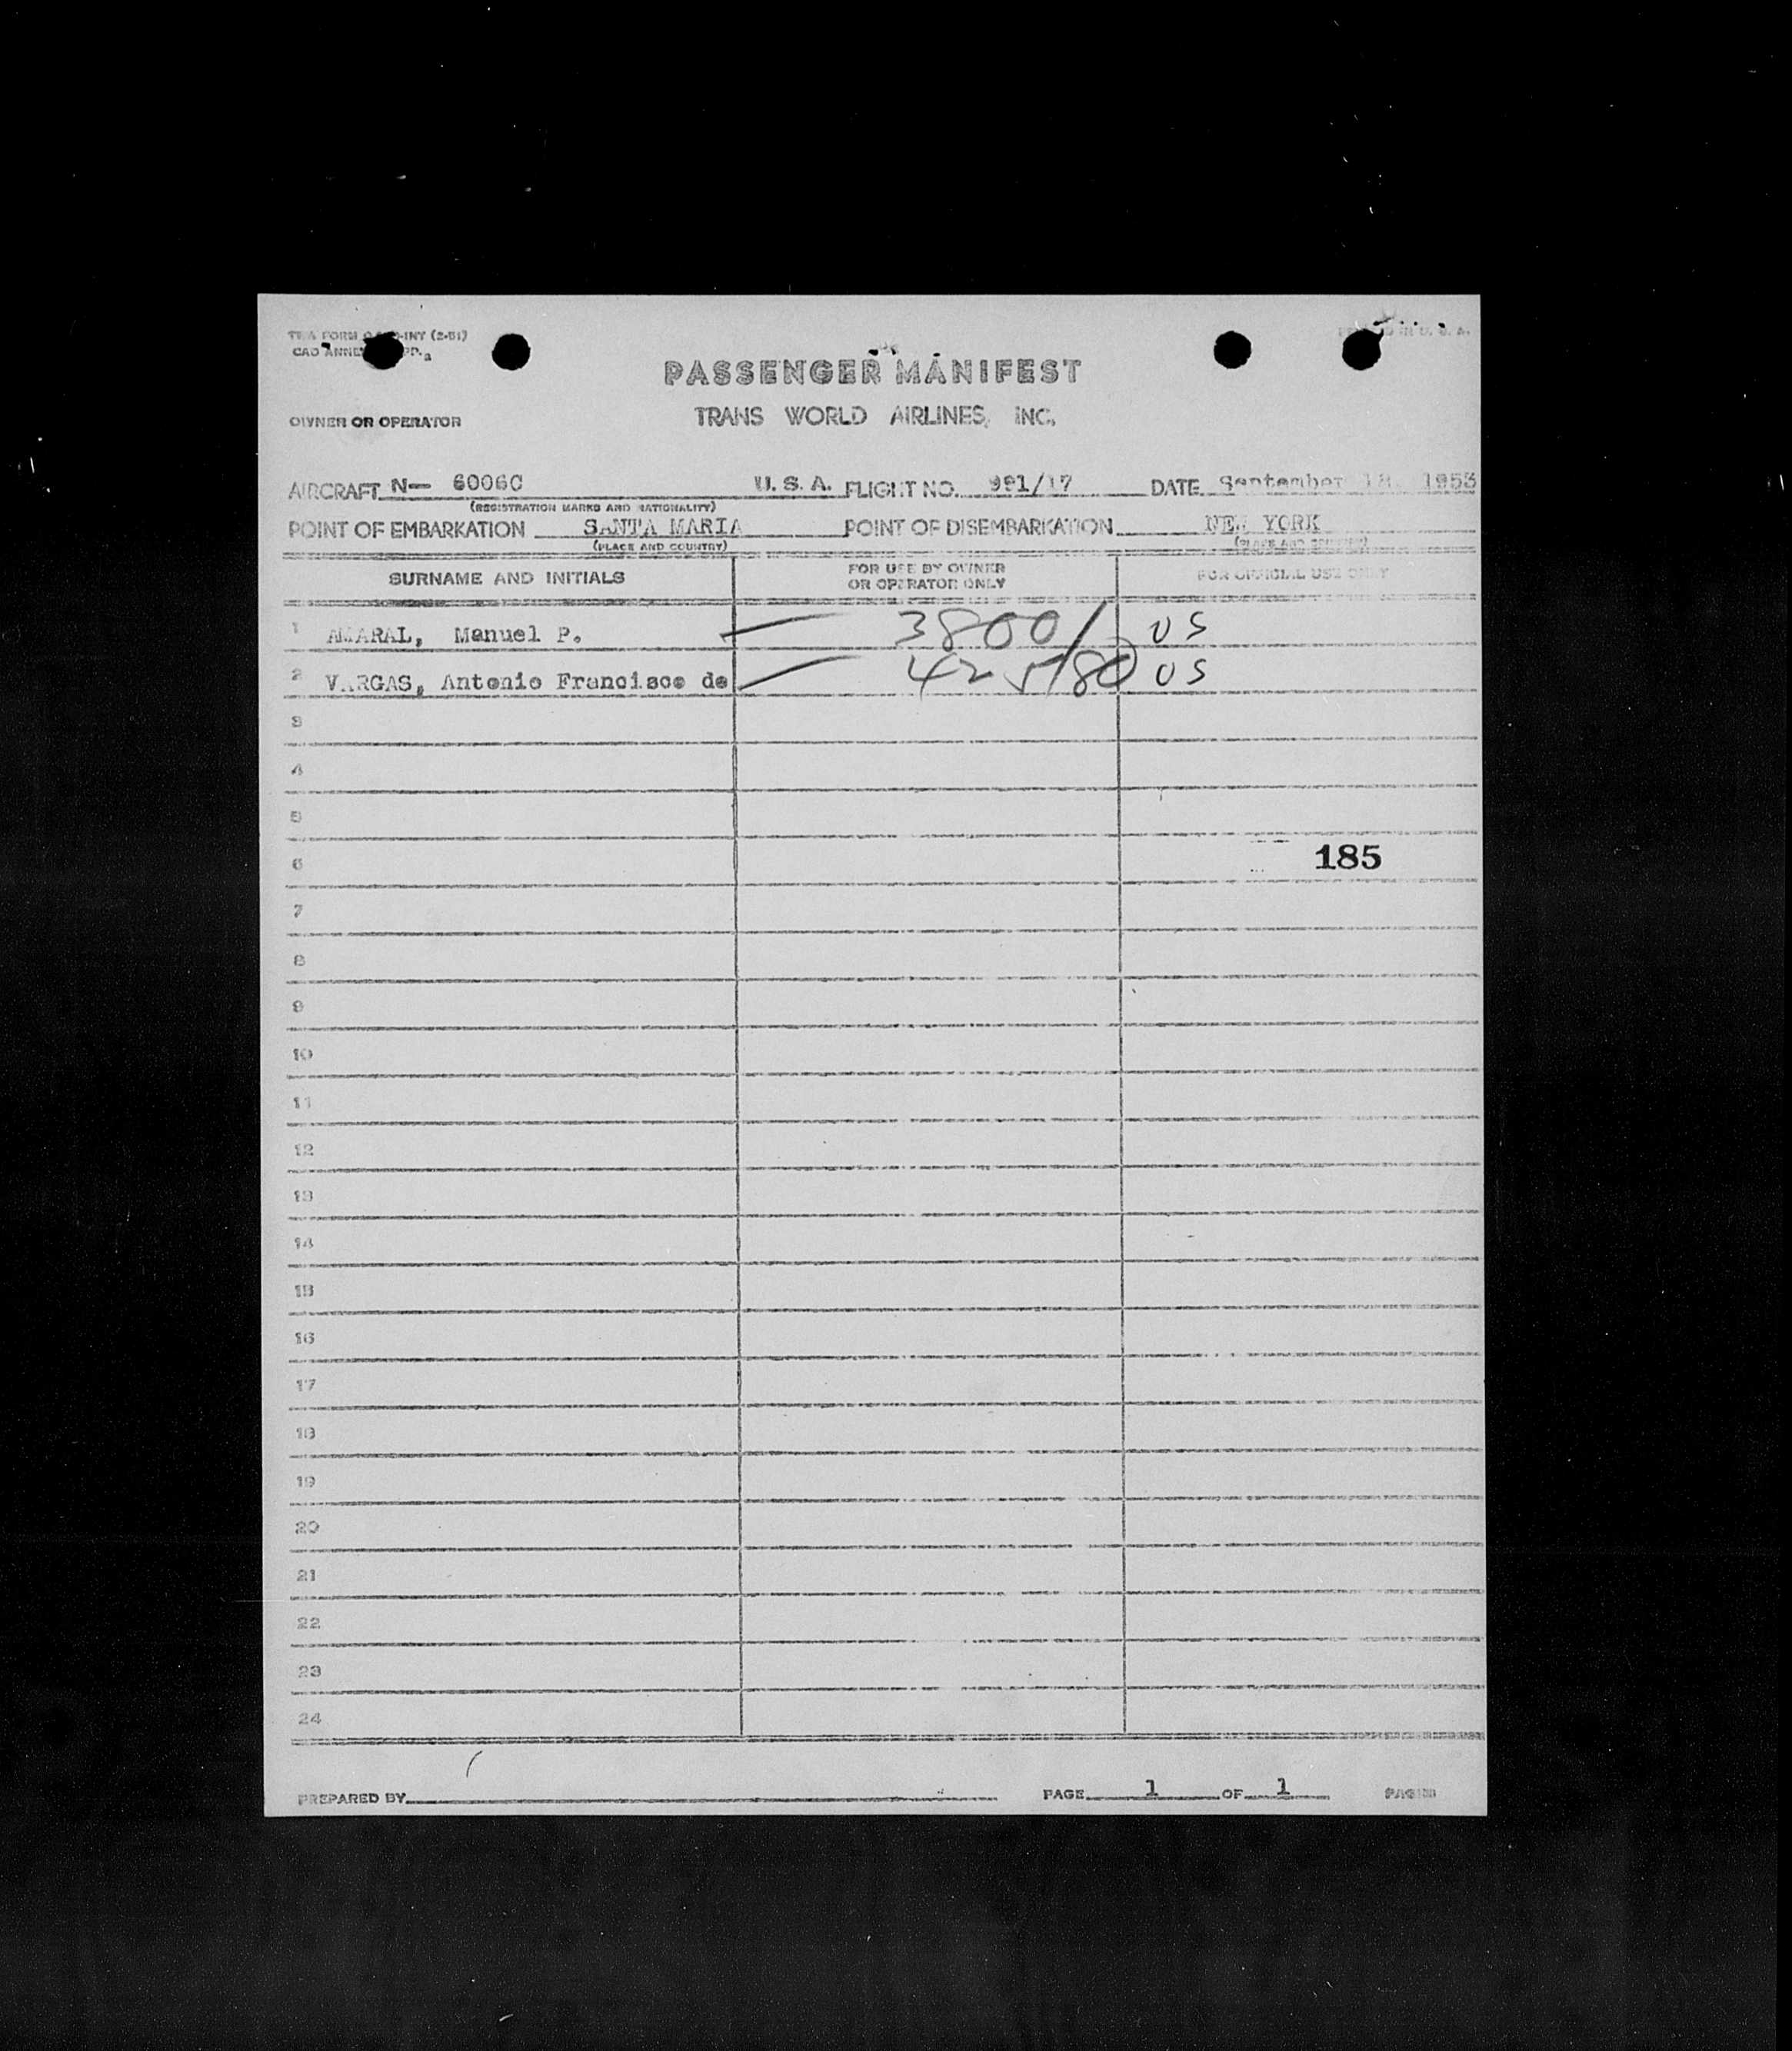 TWA FORM -INT (2-51)
CAO ANNEX
PASSENGER MANIFEST
OWNER OR OPERATOR
TRANS WORLD AIRLINES, INC.
AIRCRAFT N— 6006C U. S. A. FLIGHT NO. 991/17 DATE September 18, 1953
(REGISTRATION MARKS AND NATIONALITY)
POINT OF EMBARKATION SANTA MARIA POINT OF DISEMBARKATION NEW YORK
(PLACE AND COUNTRY) (PLACE AND COUNTRY)
SURNAME AND INITIALS FOR USE BY OWNER OR OPERATOR ONLY FOR OFFICIAL USE ONLY
1 AMARAL, Manuel P. 3800/ US
2 VARGAS, Antonio Francisco de US
3
4
5
6 185
7
8
9
10
11
12
13
14
15
16
17
18
19
20
21
22
23
24
PREPARED BY PAGE 1 OF 1 PAGES